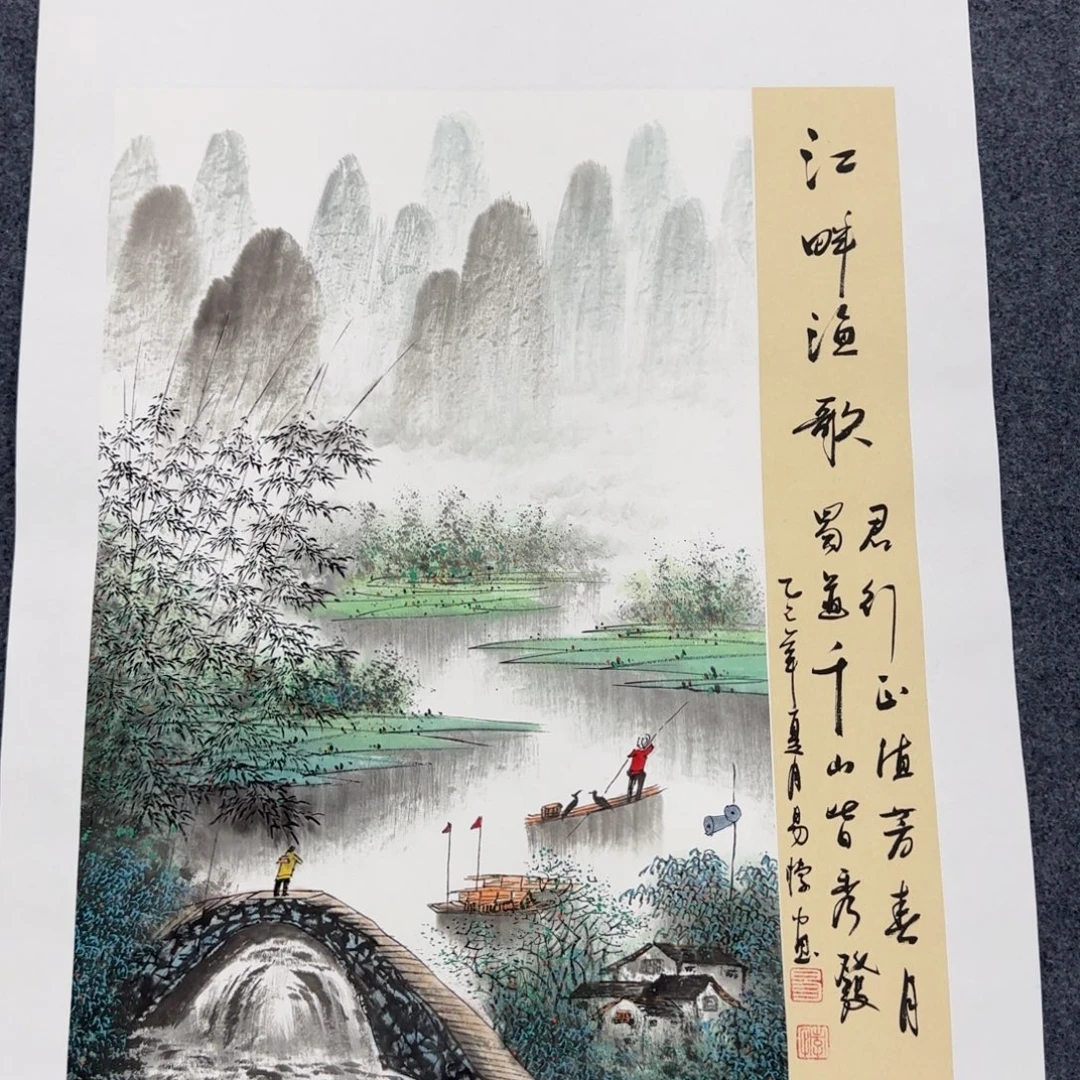 江畔渔歌
君行正值芳春月
蜀道千山皆秀發
乙巳年夏月易画